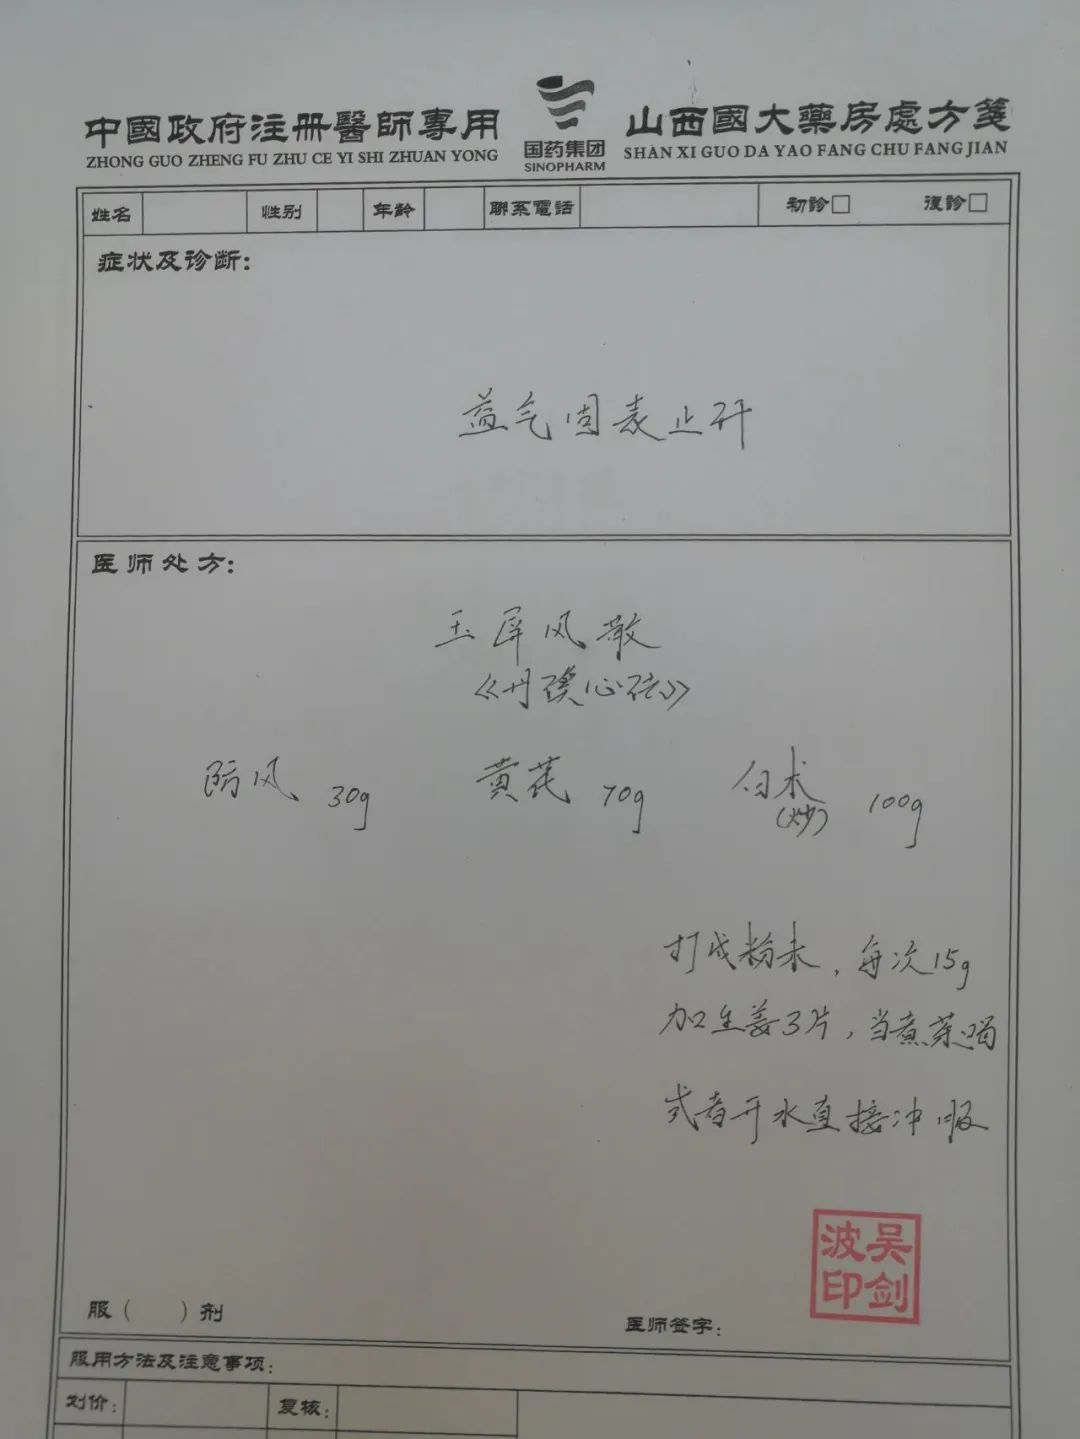 中國政府注册醫師專用
ZHONG GUO ZHENG FU ZHU CE YI SHI ZHUAN YONG
国药集团
SINOPHARM
山西國大藥房處方箋
SHAN XI GUO DA YAO FANG CHU FANG JIAN
姓名 性别 年龄 聯系電話 初診□ 復診□
症状及诊断:
益气固表止汗
医师处方:
玉屏风散
《丹溪心法》
防风 30g 黄芪 70g 白术(炒) 100g
打成粉末，每次15g
加生姜3片，当煮茶喝
或者开水直接冲服
吴剑波印
服( )剂
医师签字:
服用方法及注意事项:
划价: 复核: